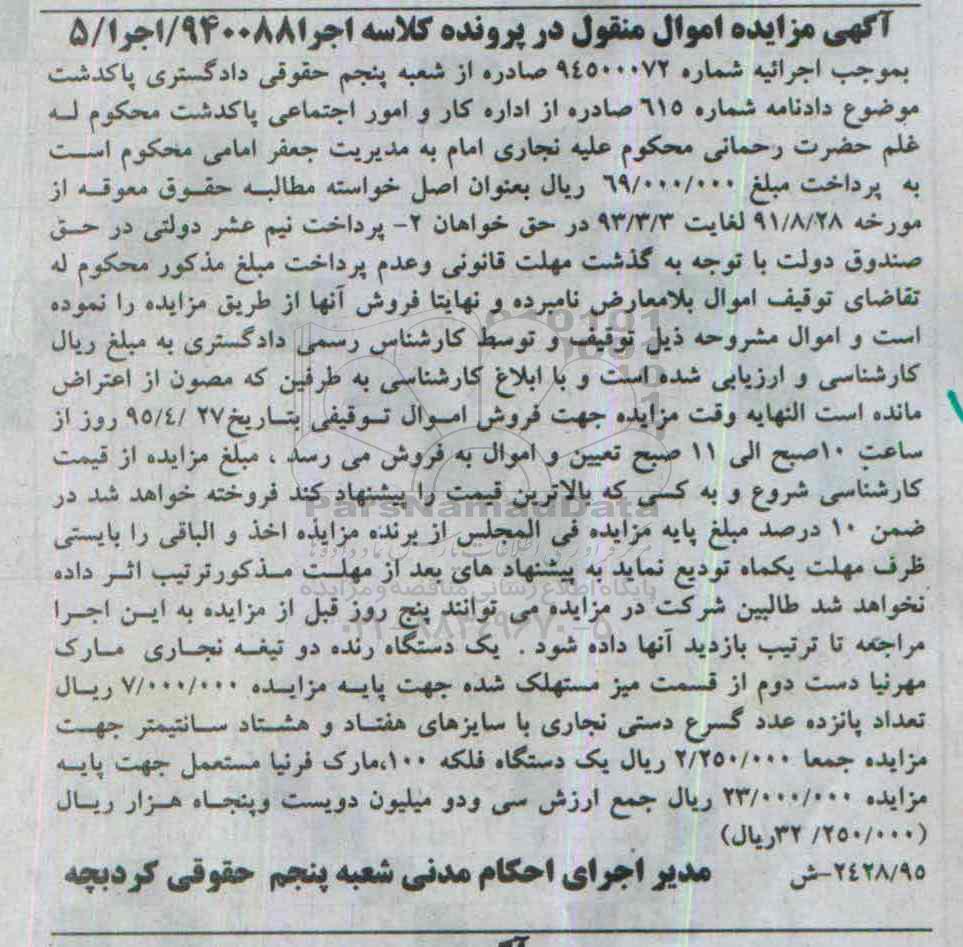 آگهی مزایده اموال منقول در پرونده کلاسه اجرا۹۴۰۰۸۸/اجرا/۵
بموجب اجرائیه شماره ۹٤٥۰۰۰۷۲ صادره از شعبه پنجم حقوقی دادگستری پاکدشت
موضوع دادنامه شماره ٦۱٥ صادره از اداره کار و امور اجتماعی پاکدشت محکوم له
غلم حضرت رحمانی محکوم علیه نجاری امام به مدیریت جعفر امامی محکوم است
به پرداخت مبلغ ٦۹/۰۰۰/۰۰۰ ریال بعنوان اصل خواسته مطالبه حقوق معوقه از
مورخه ۹۱/۸/۲۸ لغایت ۹۳/۳/۳ در حق خواهان ۲- پرداخت نیم عشر دولتی در حق
صندوق دولت با توجه به گذشت مهلت قانونی وعدم پرداخت مبلغ مذکور محکوم له
تقاضای توقیف اموال بلامعارض نامبرده و نهایتا فروش آنها از طریق مزایده را نموده
است و اموال مشروحه ذیل توقیف و توسط کارشناس رسمی دادگستری به مبلغ ریال
کارشناسی و ارزیابی شده است و با ابلاغ کارشناسی به طرفین که مصون از اعتراض
مانده است النهایه وقت مزایده جهت فروش اموال توقیفی بتاریخ۲۷ /۹٥/٤ روز از
ساعت ۱۰صبح الی ۱۱ صبح تعیین و اموال به فروش می رسد ، مبلغ مزایده از قیمت
کارشناسی شروع و به کسی که بالاترین قیمت را پیشنهاد کند فروخته خواهد شد در
ParsNamadData
ضمن ۱۰ درصد مبلغ پایه مزایده فی المجلس از برنده مزایده اخذ و الباقی را بایستی
ظرف مهلت یکماه تودیع نماید به پیشنهاد های بعد از مهلت مذکورترتیب اثر داده
پایگاه اطلاع رسانی مناقصه و مزایده
نخواهد شد طالبین شرکت در مزایده می توانند پنج روز قبل از مزایده به این اجرا
مراجعه تا ترتیب بازدید آنها داده شود . یک دستگاه رنده دو تیغه نجاری مارک
مهرنیا دست دوم از قسمت میز مستهلک شده جهت پایه مزایده ۷/۰۰۰/۰۰۰ ریال
تعداد پانزده عدد گسرع دستی نجاری با سایزهای هفتاد و هشتاد سانتیمتر جهت
مزایده جمعا ۲/۲٥۰/۰۰۰ ریال یک دستگاه فلکه ۱۰۰،مارک فرنیا مستعمل جهت پایه
مزایده ۲۳/۰۰۰/۰۰۰ ریال جمع ارزش سی ودو میلیون دویست وپنجاه هزار ریال
(۳۲/۲٥۰/۰۰۰ریال)
۲٤۲۸/۹٥-ش مدیر اجرای احکام مدنی شعبه پنجم حقوقی کردبچه